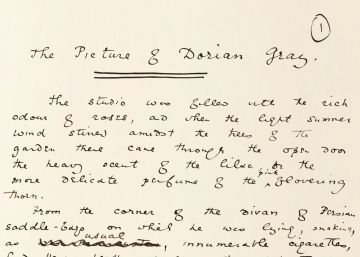 1
The Picture of Dorian Gray.
The studio was filled with the rich
odour of roses, and when the light summer
wind stirred amidst the trees of the
garden there came through the open door
the heavy scent of the lilac, or the
more delicate perfume of the pink-flowering
thorn.
From the corner of the divan of Persian
saddle-bags on which he was lying, smoking,
as usual, innumerable cigarettes,